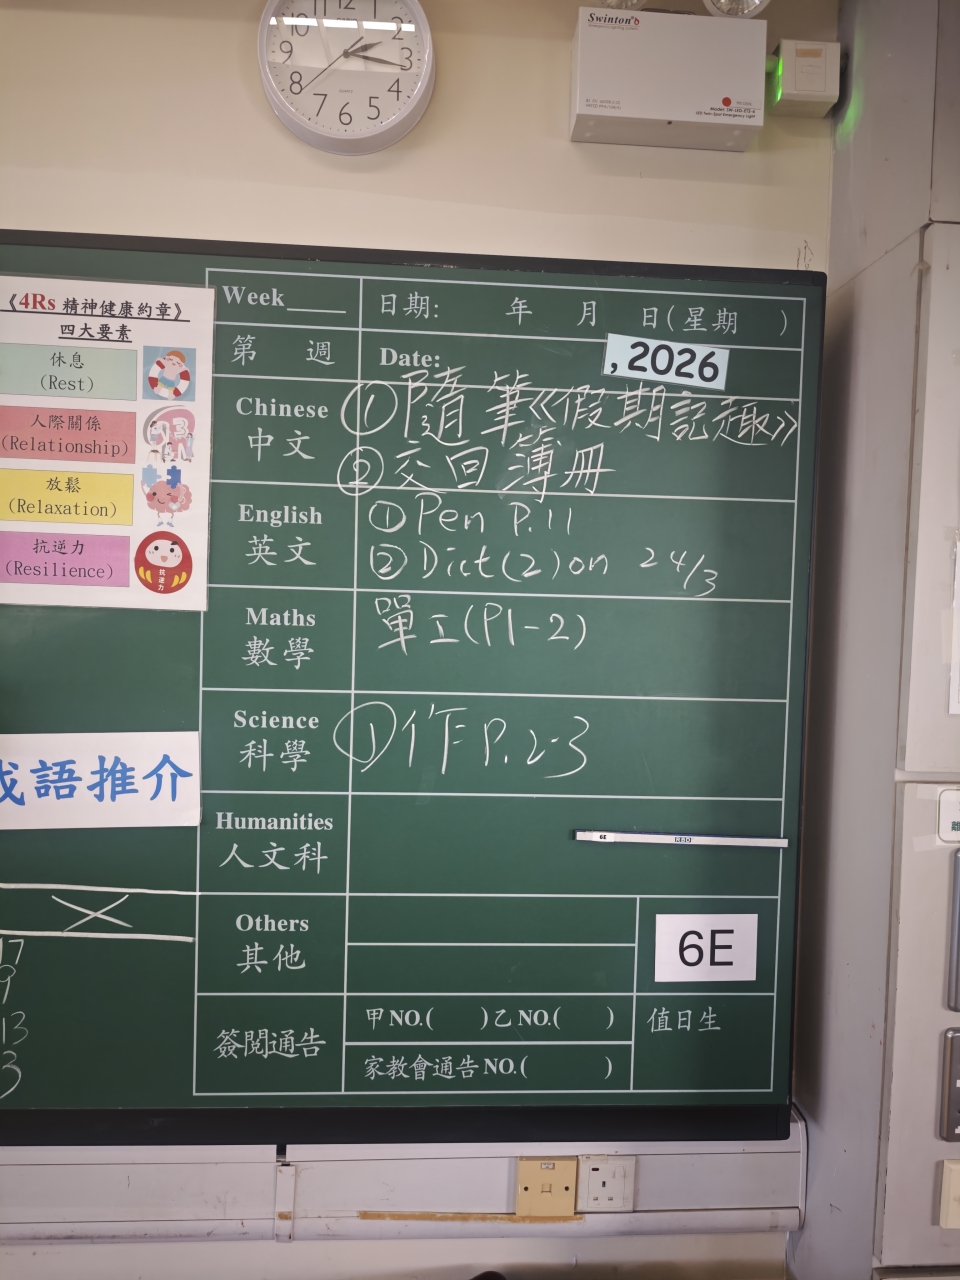 12
10
2
9
3
8
4
7
6
5
Swinton
Model: SW-LED-ET2-A
LED Twin Spot Emergency Light
《4Rs 精神健康約章》
四大要素
休息
(Rest)
人際關係
(Relationship)
放鬆
(Relaxation)
抗逆力
(Resilience)
抗逆力
成語推介
17
9
13
3
Week____ 日期: 年 月 日(星期 )
第 週 Date: , 2026
Chinese
中文
①隨筆《假期記趣》
②交回簿冊
English
英文
① Pen P.11
② Dict(2) on 24/3
Maths
數學
單工(P1-2)
Science
科學
①作P.2-3
Humanities
人文科
6E
Others
其他
6E
簽閱通告
甲NO.( )乙NO.( )
家教會通告NO.( )
值日生